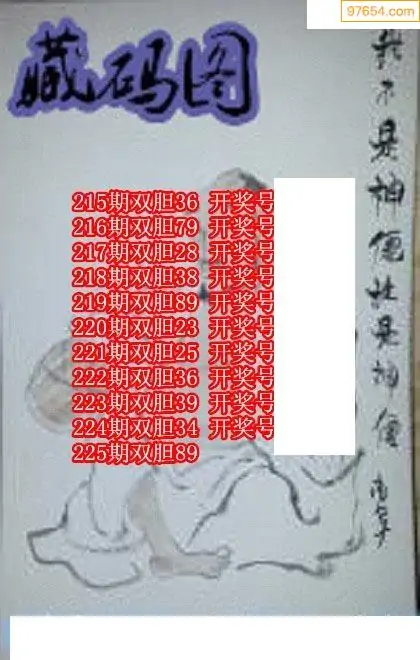 97654.com
藏码图
我不是神僊谁是神僊
215期双胆36 开奖号
216期双胆79 开奖号
217期双胆28 开奖号
218期双胆38 开奖号
219期双胆89 开奖号
220期双胆23 开奖号
221期双胆25 开奖号
222期双胆36 开奖号
223期双胆39 开奖号
224期双胆34 开奖号
225期双胆89